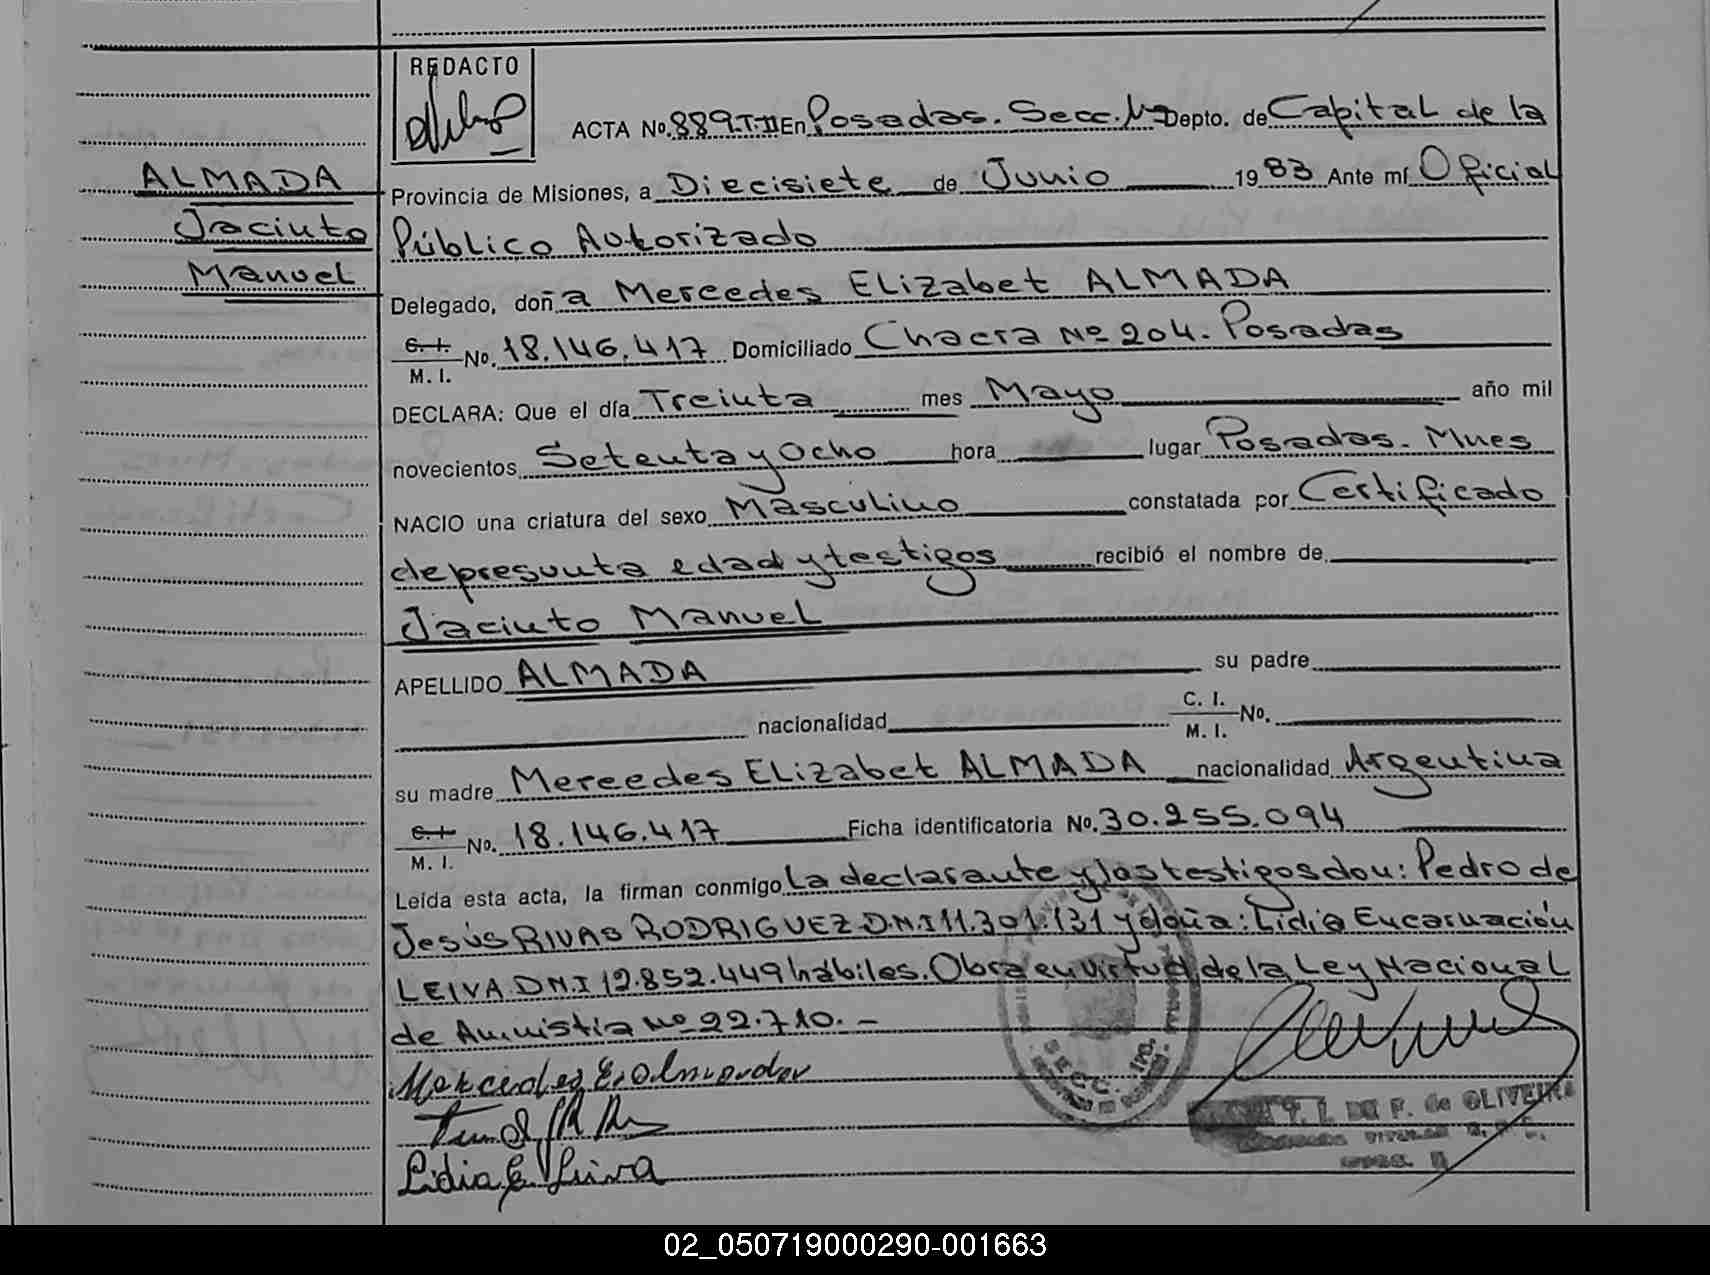 REDACTO
ACTA No. 889.T-II En Posadas. Secc. 1ª Depto. de Capital de la
ALMADA
Jacinto
Manuel
Provincia de Misiones, a Diecisiete de Junio 1983 Ante mí Oficial
Público Autorizado
Delegado, doña Mercedes ELizabet ALMADA
C. I.
M. I. No. 18.146.417 Domiciliado Chacra Nº 204. Posadas
DECLARA: Que el día Treinta mes Mayo año mil
novecientos Setenta y Ocho hora lugar Posadas - Mnes
NACIO una criatura del sexo Masculino constatada por Certificado
de presunta edad y testigos recibió el nombre de
Jacinto Manuel
APELLIDO ALMADA su padre
nacionalidad C. I.
M. I. No.
su madre Mercedes ELizabet ALMADA nacionalidad Argentina
C. I.
M. I. No. 18.146.417 Ficha identificatoria No. 30.255.094
Leída esta acta, la firman conmigo La declarante y los testigos don: Pedro de
Jesús RIVAS RODRIGUEZ D.N.I 11.301.131 y doña: Lidia Encarnación
LEIVA D.N.I 12.852.449 hábiles. Obra en virtud de la Ley Nacional
de Amnistia Nº 22.710. -
Mercedes E. Almada
Lidia E. Leiva
SECC. 1RA.
F. de OLIVEIRA
02_050719000290-001663